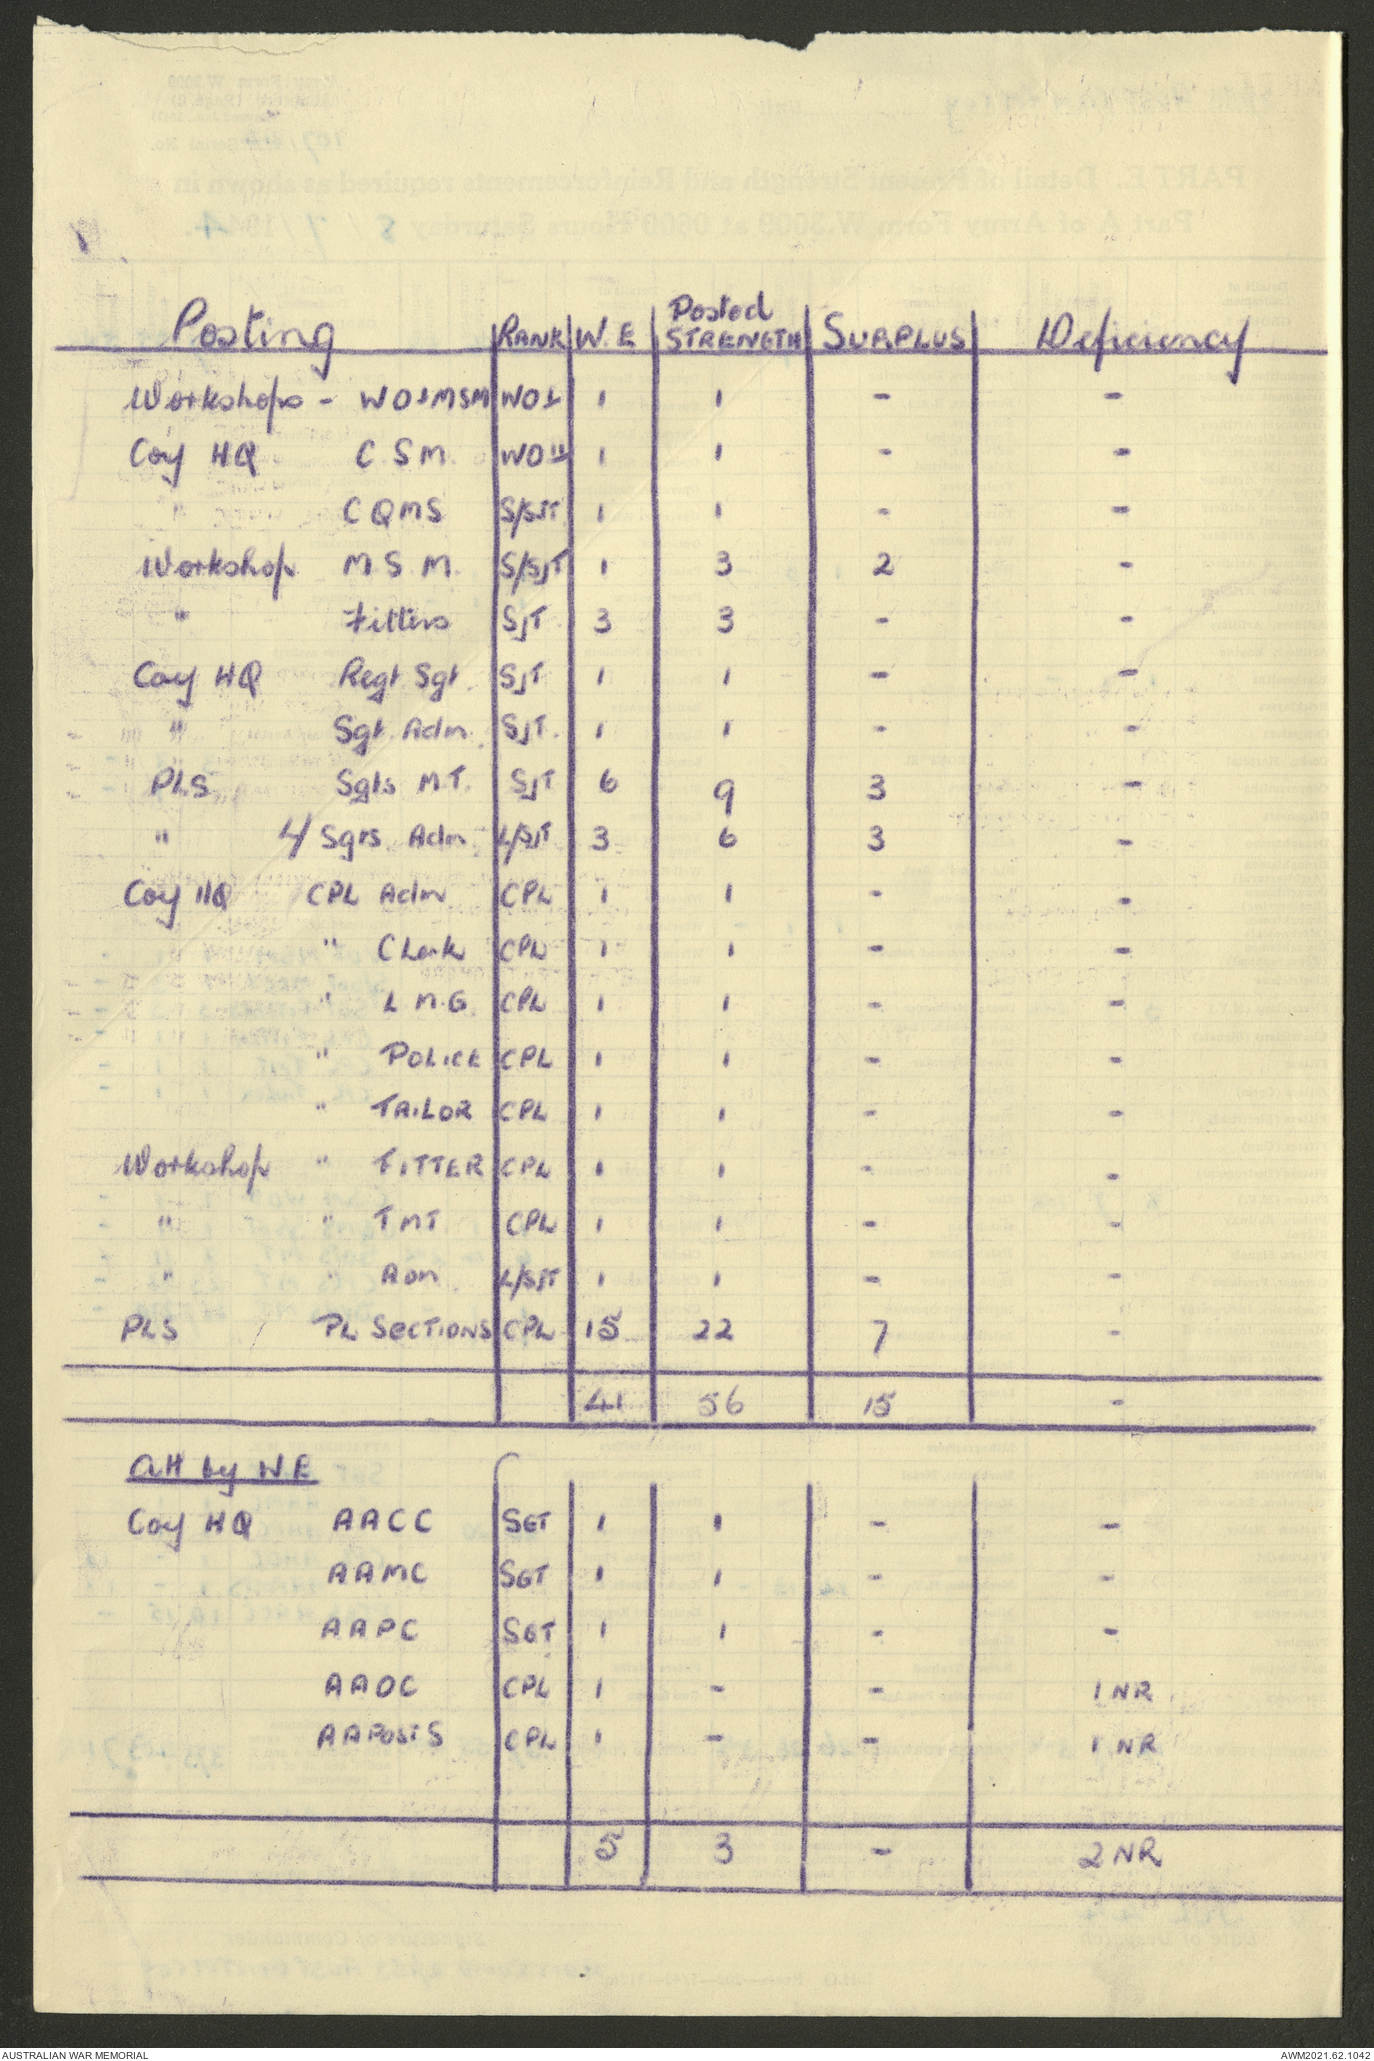 Posting RANK W.E Posted STRENGTH SURPLUS Deficiency
Workshops - WO1MSM WO1 1 1 - -
Coy HQ CSM WOII 1 1 - -
" CQMS S/SJT 1 1 - -
Workshop MSM. S/SJT 1 3 2 -
" Fitters SJT 3 3 - -
Coy HQ Regt Sgt. SJT 1 1 - -
" Sgt. Adm. SJT. 1 1 - -
PLS Sgts M.T. SJT 6 9 3 -
" L/Sgts Adm L/SJT 3 6 3 -
Coy HQ CPL Adm CPL 1 1 - -
" Clerk CPL 1 1 - -
" L M.G CPL 1 1 - -
" POLICE CPL 1 1 - -
" TAILOR CPL 1 1 - -
Workshop " FITTER CPL 1 1 - -
" " TMT CPL 1 1 - -
" " Adm L/SJT 1 1 - -
PLS PL SECTIONS CPL 15 22 7 -
41 56 15 -
att by W.E
Coy HQ AACC SGT 1 1 - -
AAMC SGT 1 1 - -
AAPC SGT 1 1 - -
AAOC CPL 1 - - 1 NR
AAPostS CPL 1 - - 1 NR
5 3 - 2 NR
AUSTRALIAN WAR MEMORIAL AWM2021.62.1042